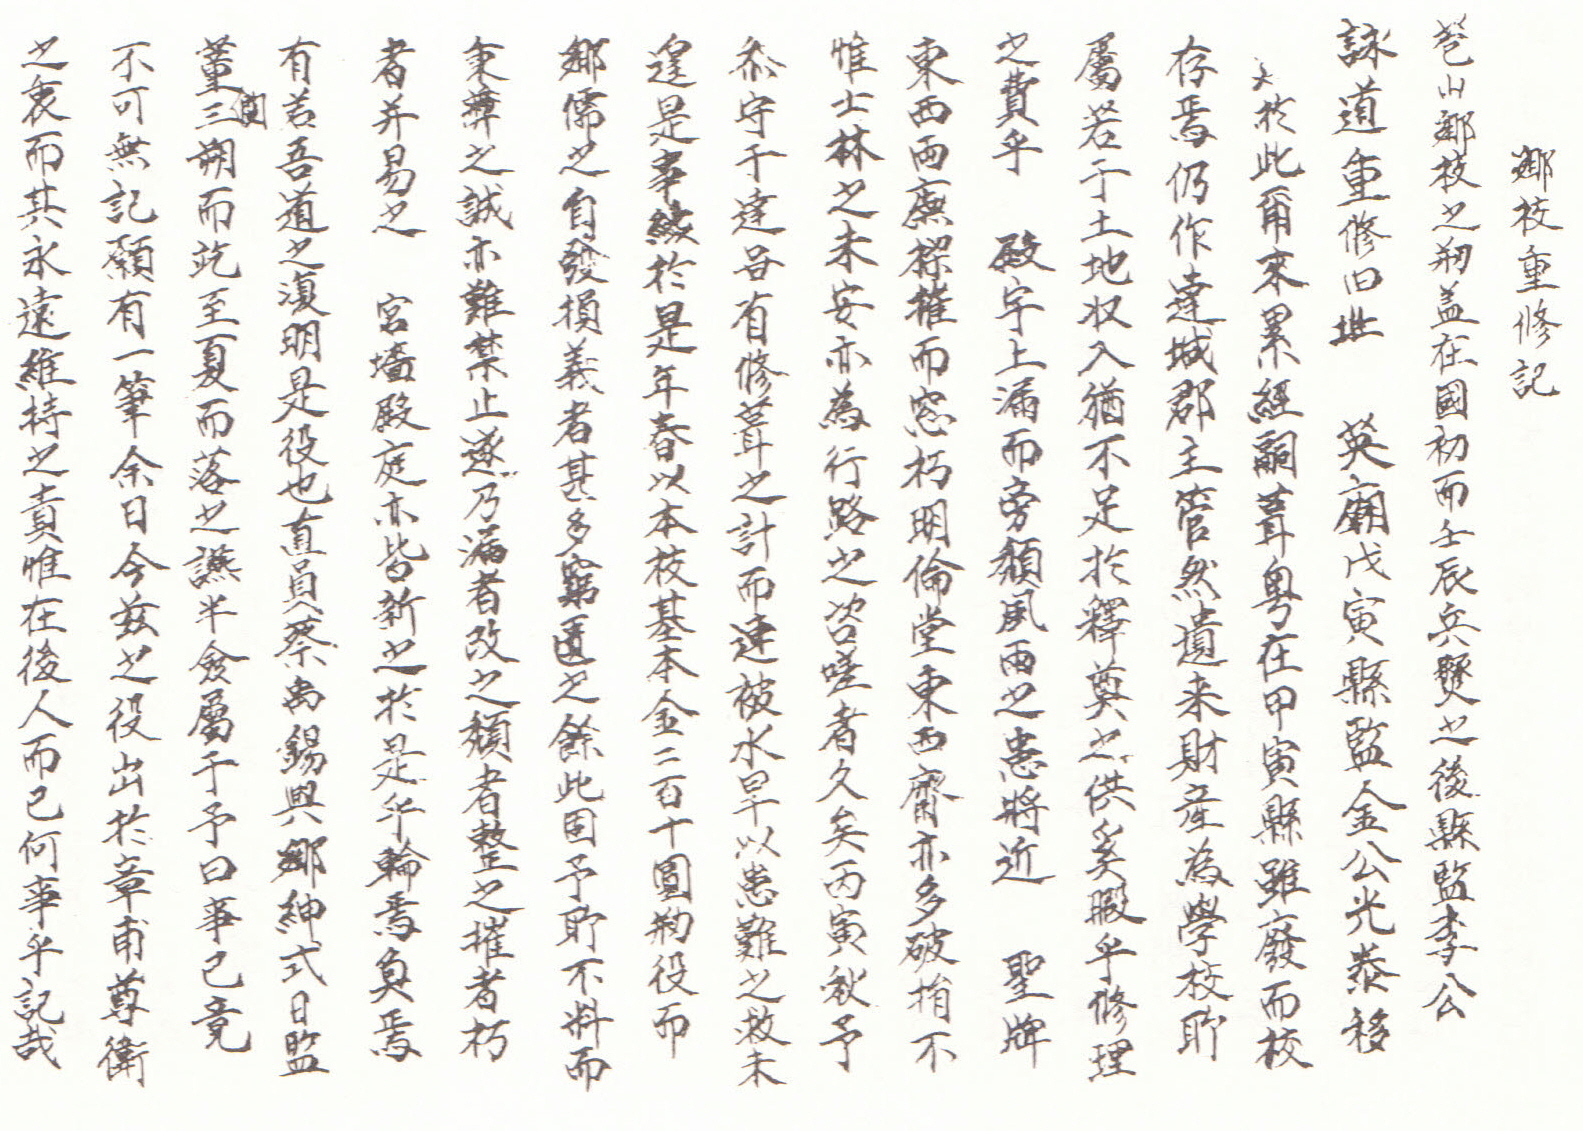 鄉校重修記
苞山鄉校之刱盖在國初而壬辰兵燹之後縣監李公
詠道重修旧址 英廟戊寅縣監金公光泰移
大於此爾來累經嗣葺粤在甲寅縣雖廢而校
存焉仍作達城郡主管然遺来財産為學校所
屬若干土地収入猶不足於釋奠之供奚暇乎修理
之費乎 殿宇上漏而旁頹風雨之患將近 聖牌
東西兩廡樑摧而窓朽明倫堂東西齋亦多破揹不
惟士林之未安亦為行路之咨嗟者久矣丙寅秋予
忝守于達吾有修葺之計而連被水旱以患難之救未
遑是事纔於是年春以本校基本金二百十圓刱役而
鄉儒之自發損義者甚多窮匱之餘此固予所不料而
秉彛之誠亦難禁止遂乃漏者改之頹者整之摧者朽
者并易之 宮墻殿庭亦皆新之於是乎輪焉奐焉
有若吾道之復明是役也直員蔡禹錫與鄉紳式日監
董三朔而訖至夏而落之讌半僉屬于予曰事已竟
間
不可無記願有一筆余曰今茲之役出於章甫尊衛
之衷而其永遠維持之責惟在後人而已何事乎記哉